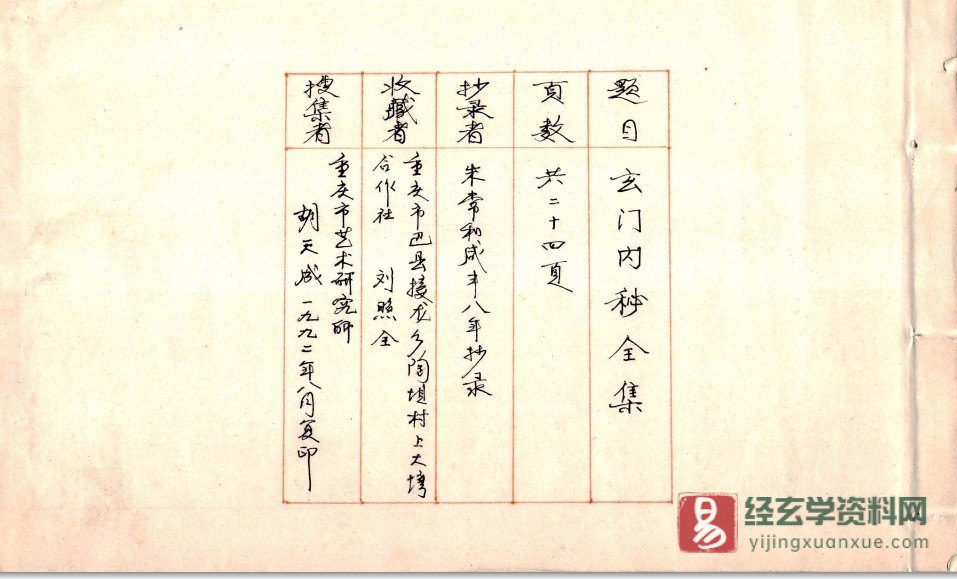 题目
玄门内秘全集
頁数
共二十四頁
抄录者
朱常和咸丰八年抄录
收藏者
重庆市巴县接龙乡陶坝村上大塆
合作社 刘照全
搜集者
重庆市艺术研究所
胡天成 一九九二年八月复印
易
经玄学资料网
yijingxuanxue.com